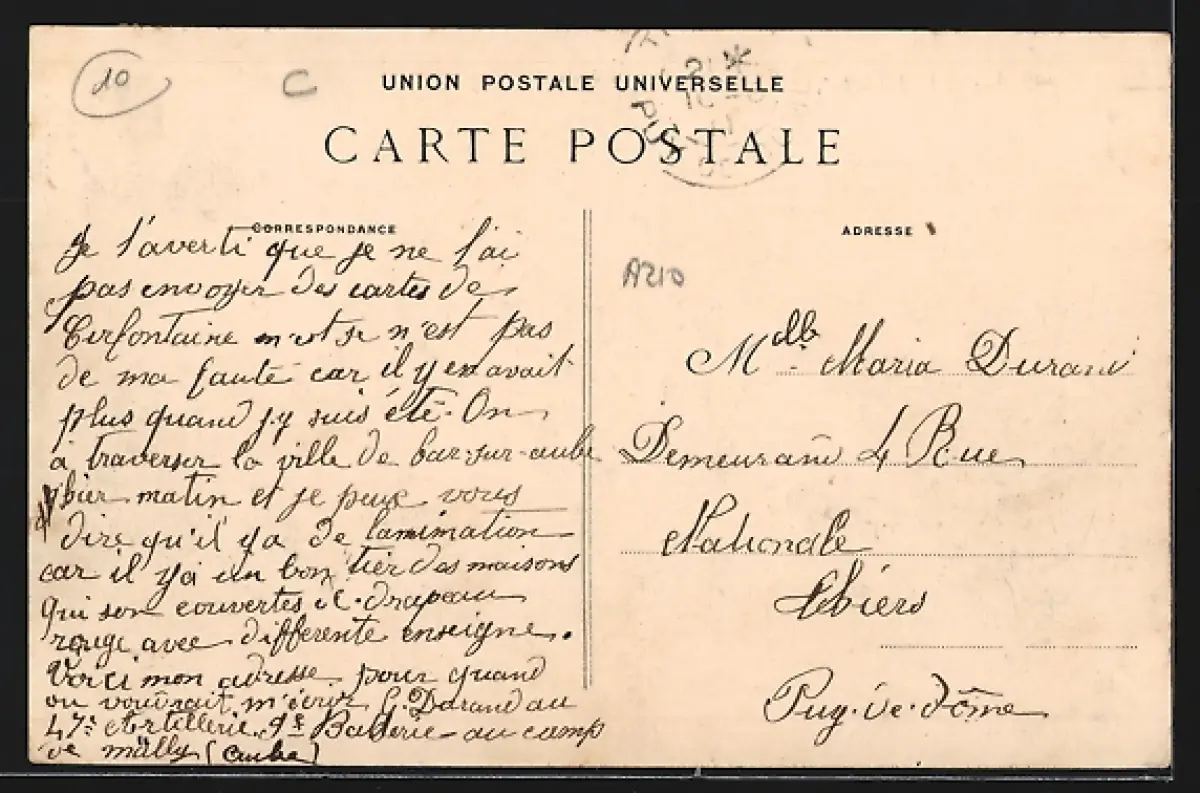 10
C
UNION POSTALE UNIVERSELLE
CARTE POSTALE
CORRESPONDANCE
Je t'averti que je ne t'ai
pas envoyer des cartes de
Cirfontaine m'est se n'est pas
de ma faute car il y en avait
plus quand j.y suis été. On
à traverser la ville de bar-sur-aube
hier matin et je peux vous
dire qu'il ya de lamimation
car il ya un bon tier des maisons
qui son couvertes de drapeau
rouge avec differente enseigne.
Voici mon adresse pour quand
on voudrait m'écrir G. Durand au
47e Artillerie 9e Batterie au camp
de mailly (aube)
ADRESSE
A210
Mlle Maria Durand
Demeurant 4 Rue
Nationale
Thiers
Puy-de-dôme